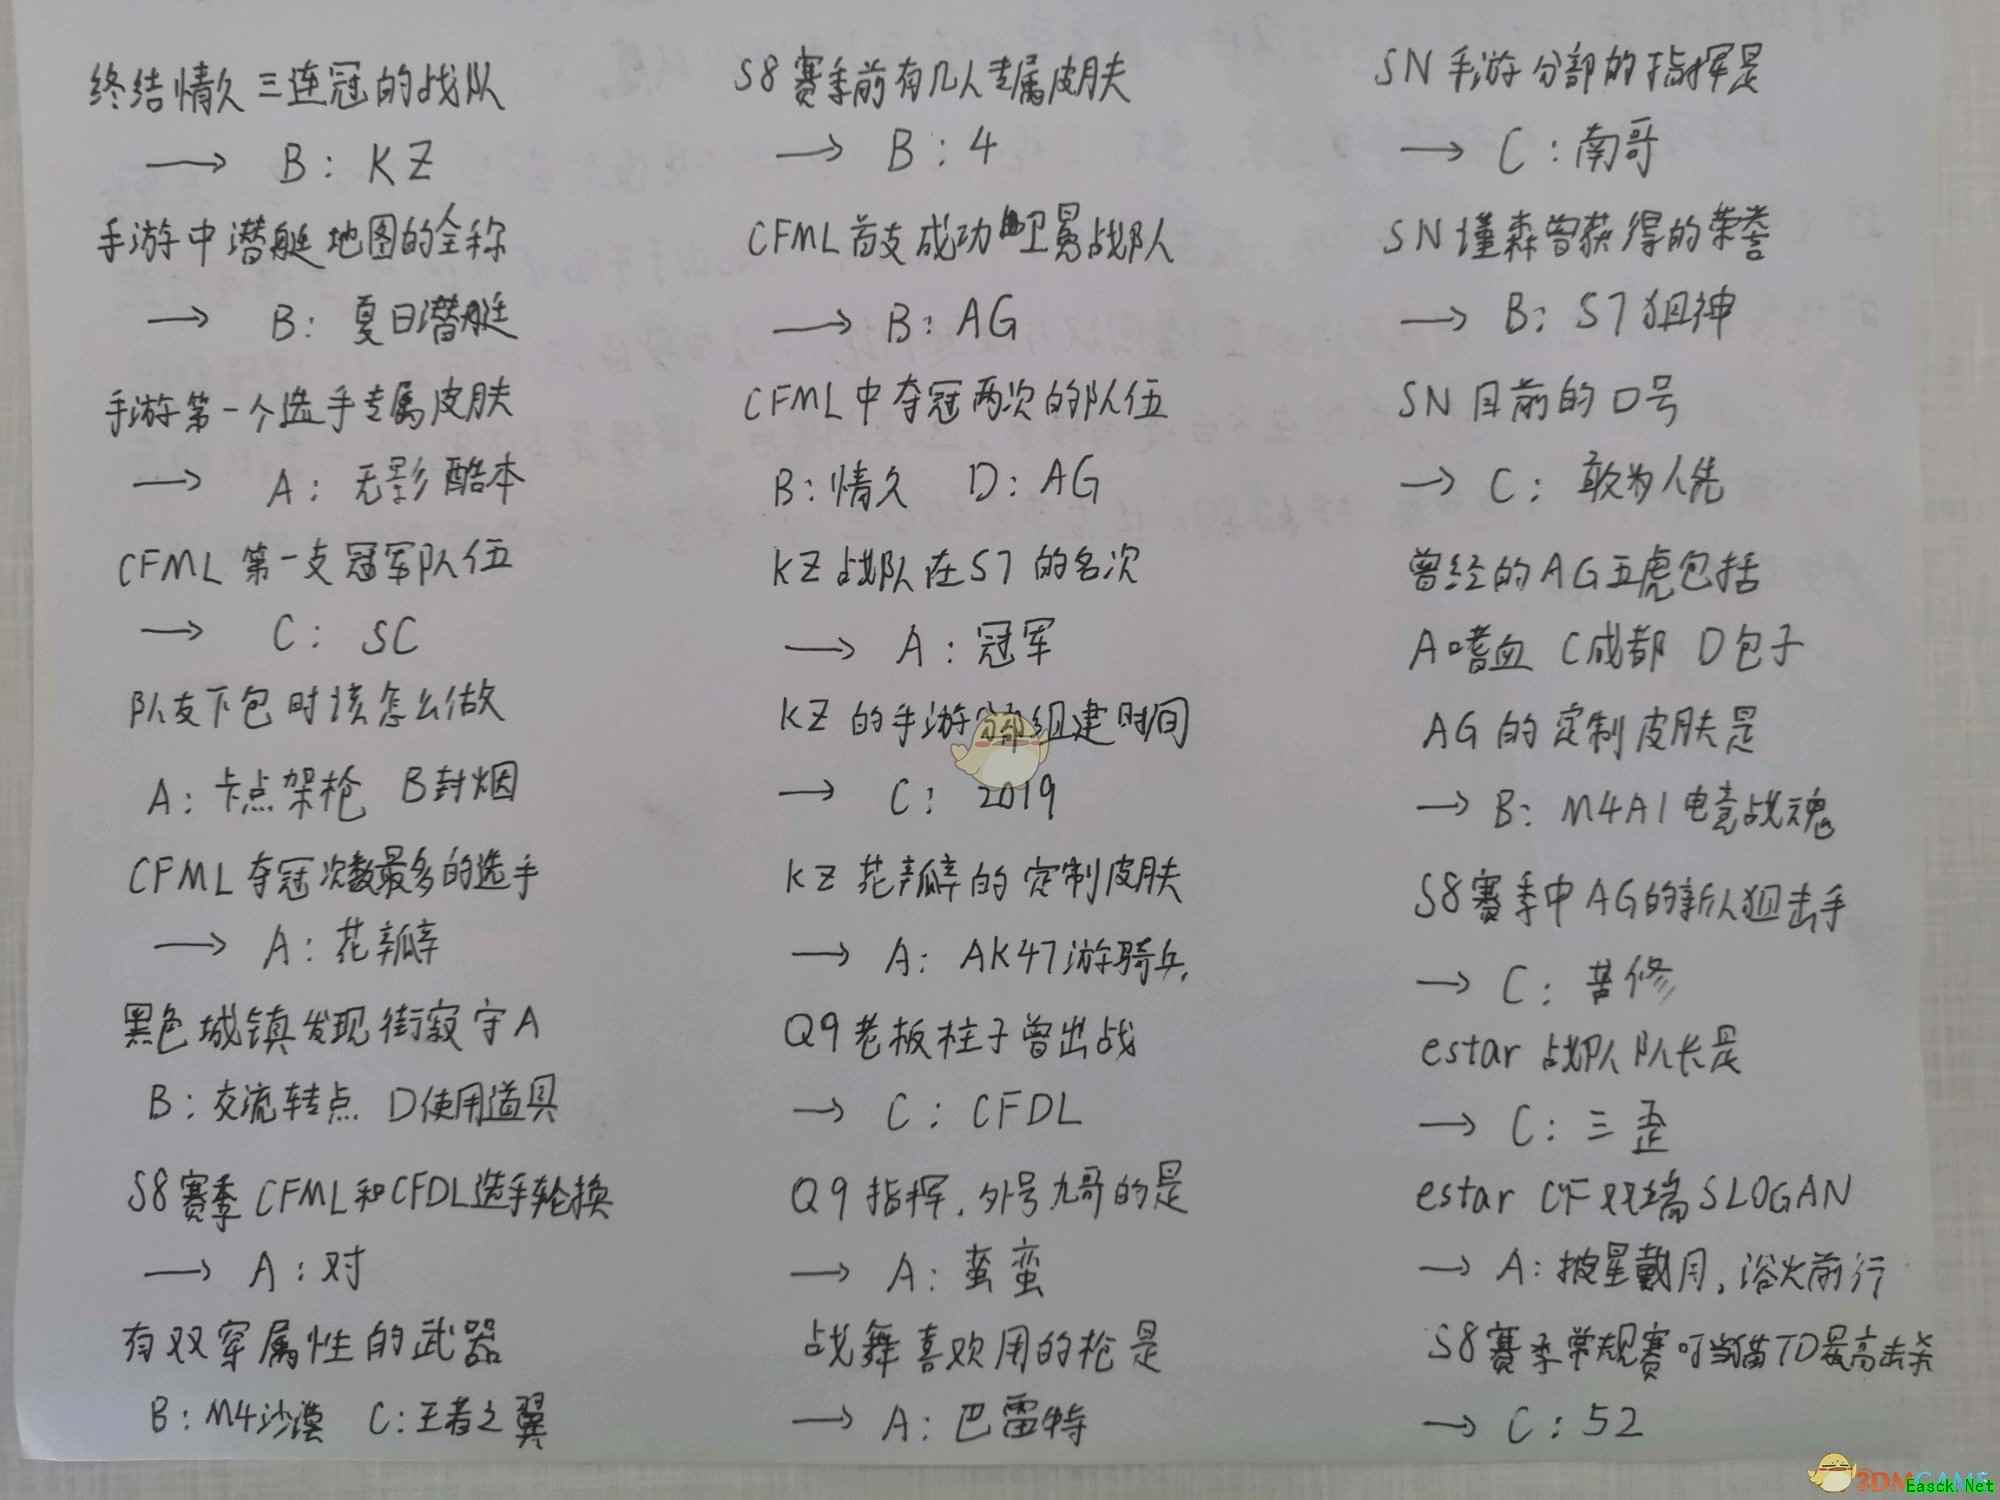 终结情久三连冠的战队
→ B: KZ
手游中潜艇地图的全称
→ B: 夏日潜艇
手游第一个选手专属皮肤
→ A: 无影酷本
CFML 第一支冠军队伍
→ C: SC
队友下包时该怎么做
A: 卡点架枪 B封烟
CFML夺冠次数最多的选手
→ A: 花瓣
黑色城镇发现街寂守A
B: 交流转点 D使用道具
S8赛季CFML和CFDL选手轮换
→ A: 对
有双穿属性的武器
B: M4沙漠 C: 王者之翼
S8赛季前有几人专属皮肤
→ B: 4
CFML首支成功卫冕战队
→ B: AG
CFML中夺冠两次的队伍
B: 情久 D: AG
KZ战队在S7的名次
→ A: 冠军
KZ的手游分部组建时间
→ C: 2019
KZ花瓣的定制皮肤
→ A: AK47游骑兵.
Q9老板柱子曾出战
→ C: CFDL
Q9指挥,外号九哥的是
→ A: 茧蛮
战舞喜欢用的枪是
→ A: 巴雷特
SN手游分部的指挥是
→ C: 南哥
SN谨森曾获得的荣誉
→ B: S7狙神
SN目前的口号
→ C: 敢为人先
曾经的AG五虎包括
A嗜血 C成都 D包子
AG的定制皮肤是
→ B: M4A1电竞战魂
S8赛季中AG的新人狙击手
→ C: 苦修
estar战队队长是
→ C: 三歪
estar CF双端SLOGAN
→ A: 披星戴月,浴火前行
S8赛季常规赛叮当猫TD最高击杀
→ C: 52
3DMGAME
Easck.Net